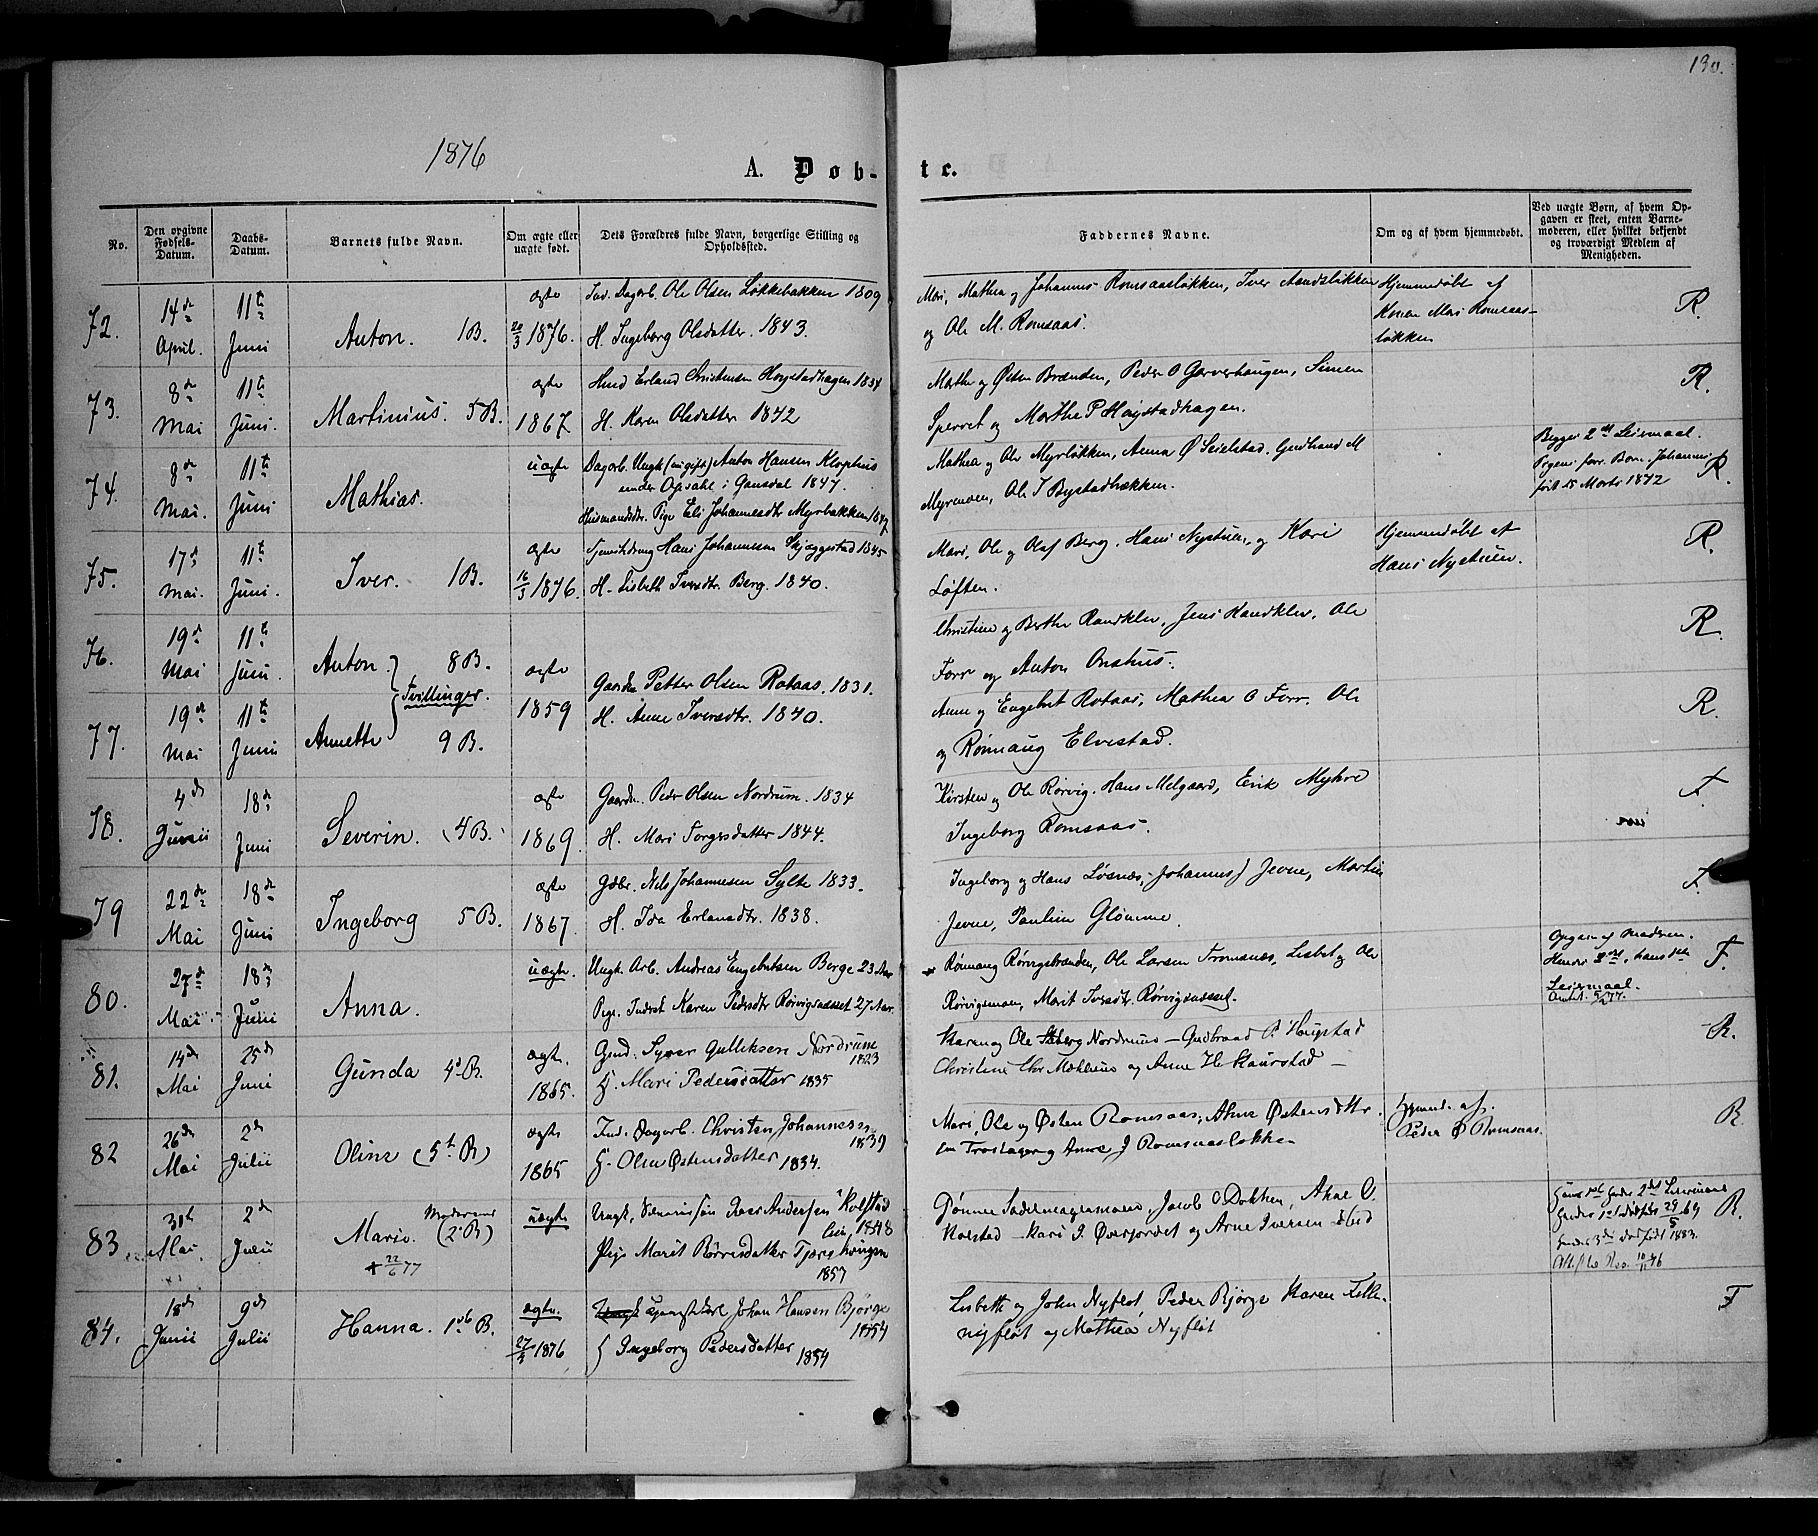 130.
1876
A. Døb-
te.
No.
Den opgivne Fødsels-Datum.
Daabs-Datum.
Barnets fulde Navn.
Om ægte eller uægte født.
Dets Forældres fulde Navn, borgerlige Stilling og Opholdssted.
Faddernes Navne.
Om og af hvem hjemmedøbt.
Ved uægte Børn, af hvem Opgaven er skeet, enten Barnemoderen, eller hvilket bekjendt og troværdigt Medlem af Menigheden.
72. 14de April. 11te Juni Anton. 1B. ægte 20/3 1876.
Ind. Dagarb. Ole Olsen Løkkebakken 1809
H. Ingeborg Olsdatter. 1843.
Mari, Mathea og Johannes Romsaasløkken, Iver Sandsløkken
og Ole M. Romsaas.
Hjemmedøbt af
Konen Mari Romsaas-
løkken
R.
73. 8de Mai 11te Juni. Martinius. 5B. ægte 1867.
Husm. Erland Christensen Haystadhagen 1834
H. Karen Olsdatter 1842
Marthe og Østen Brænden, Peder O Garverhaugen, Simen
Sperret og Marthe P Haystadhagen.
R.
74. 8de Mai. 11te Juni Mathias. uægte
Dagarb. Ungk (ungift) Anton Hansen Klophus
under Opsahl i Gausdal 1847.
Husmandsdtr. Pige Eli Johannesdtr Myrbakken 1847
Mathea og Ole Myrløkken, Anna Ø Seielstad. Gudbrand M
Myremoen, Ole I Bystadbakken.
Begges 2det Leiermaal.
Pigens forr. Barn. Johannes
født 15 Marts 1872
R.
75. 17de Mai. 11te Juni. Iver. 1B. ægte 16/3 1876.
Hans Johannesen Skjæggestad 1845
H. Lisbeth Iversdtr. Berg. 1840.
Mari, Ole og Olaf Berg. Hans Nystuen, og Kari
Løften.
Hjemmedøbt af
Hans Nystuen.
R.
76. 19de Mai 11te Juni. Anton. 8B.
Tvillinger.
77. 19de Mai 11te Juni Annette 9B.
ægte 1859
Gaardm. Petter Olsen Rotaas. 1831.
H. Anne Iversdtr. 1840.
Christine og Berthe Randklev, Jens Randklev, Ole
Forr og Anton Onshus.
R.
Anne og Engebret Rotaas, Mathea O Forr. Ole
og Rønnaug Elvestad.
R.
78. 4de Junii 18de Juni Severin. (4B. ægte 1869.
Gaardm. Peder Olsen Nordrum. 1834
H. Mari Torgersdatter 1844.
Kirsten og Ole Rørvig. Hans Melgaard, Erik Myhre
Ingeborg Romsaas.
F.
79 22de Mai 18de Juni Ingeborg 5B. ægte 1867.
Gdbr. Nils Johannesen Sylte 1833.
H. Ida Erlandsdtr. 1838.
Ingeborg og Hans Løsnæs, Johannes J Jevne, Martin
Jevne, Pauline Glømme.
F.
80. 27de Mai 18de Junii Anna. uægte.
Ungk. Arb. Andreas Engebretsen Berge 23 Aar
Pige. Inderst Karen Pedersdtr Rørvigsnæsset 27 Aar.
Rønnaug Rørvigsbrænden, Ole Larsen Tromsnes, Lisbet og Ole
Rørvigsmoen, Marit Iversdtr. Rørvigsnæsset.
Opgave af Moderen.
Hendes 2det, hans 1ste
Leiermaal.
F.
81. 14de Mai 25de Juni Gunda 4de B. ægte. 1865.
Gmd. Syver Gulliksen Nordrum 1823
H. Mari Pedersdatter 1835
Karen og Ole Nordrum – Gudbrand P Haugstad
Christine Chr Mæhlum og Anne H Staurstad –
R.
82 26de Mai 2de Julii Oline (5te B) ægte 1865
Ind. Dagarb. Christen Johannesen 1839
H. Olea Østensdatter 1834.
Mari, Ole og Østen Romsaas, Anne Østensdttr.
og Anne J Romsaasløkken
Hjemmd. af.
Peder Ø Romsaas.
R.
83. 31te Mai. 2de Julii Marie. Moderens (2det B) † 22/6 77 uægte
Ungk, Andersen Kolstad 1848
Pige Marit Pedersdatter 1857
Jacob O Dokken, Anne O.
Kolstad – Kari J. Øverjordet og Arne Iversen
Hans 1ste hendes 2det Leiermaal
R.
84. 18de Junii 9de Julii Hanna. 1ste B. ægte. 27/3 1876
Johan Hansen Bjørge 1854
H Ingeborg Pedersdatter 1854
Lisbeth og John Nyfløt, Peder Bjørge Karen
Nyfløt og Mathea Nyfløt
F